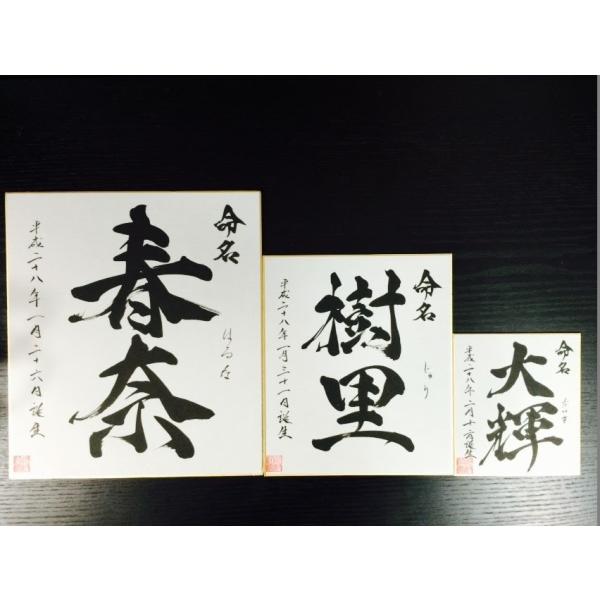 命名
春奈
はるな
平成二十八年一月二十六日誕生
命名
樹里
じゅり
平成二十八年一月三十一日誕生
命名
大輝
だいき
平成二十八年二月十六日誕生